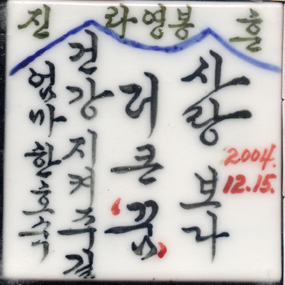 진 라영봉
사랑 보다
더 큰 '꿈'
건강 지켜주길
엄마 한호숙
2004.
12.15.